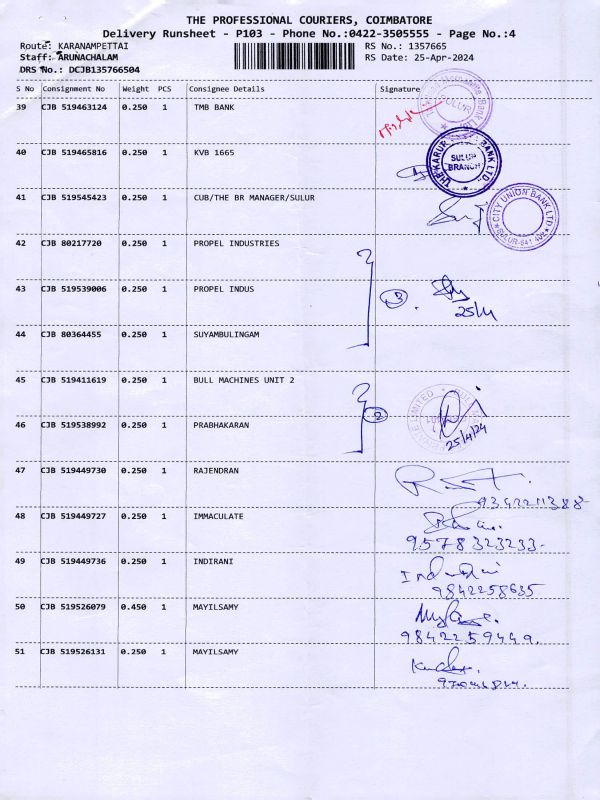 THE PROFESSIONAL COURIERS, COIMBATORE
Delivery Runsheet - P103 - Phone No.:0422-3505555 - Page No.:4
Route: KARANAMPETTAI RS No.: 1357665
Staff: ARUNACHALAM RS Date: 25-Apr-2024
DRS No.: DCJB135766504
S No Consignment No Weight PCS Consignee Details Signature
39 CJB 519463124 0.250 1 TMB BANK
SULUR
40 CJB 519465816 0.250 1 KVB 1665
THE KARUR BANK LTD SULUR BRANCH
41 CJB 519545423 0.250 1 CUB/THE BR MANAGER/SULUR
CITY UNION BANK LTD SULUR-641 402
42 CJB 80217720 0.250 1 PROPEL INDUSTRIES
43 CJB 519539006 0.250 1 PROPEL INDUS
3
25/4
44 CJB 80364455 0.250 1 SUYAMBULINGAM
45 CJB 519411619 0.250 1 BULL MACHINES UNIT 2
2
PRIVATE LIMITED
46 CJB 519538992 0.250 1 PRABHAKARAN
25/4/24
47 CJB 519449730 0.250 1 RAJENDRAN
9342211388
48 CJB 519449727 0.250 1 IMMACULATE
9578323233-
49 CJB 519449736 0.250 1 INDIRANI
Indirani
9842258635
50 CJB 519526079 0.450 1 MAYILSAMY
9842259449.
51 CJB 519526131 0.250 1 MAYILSAMY